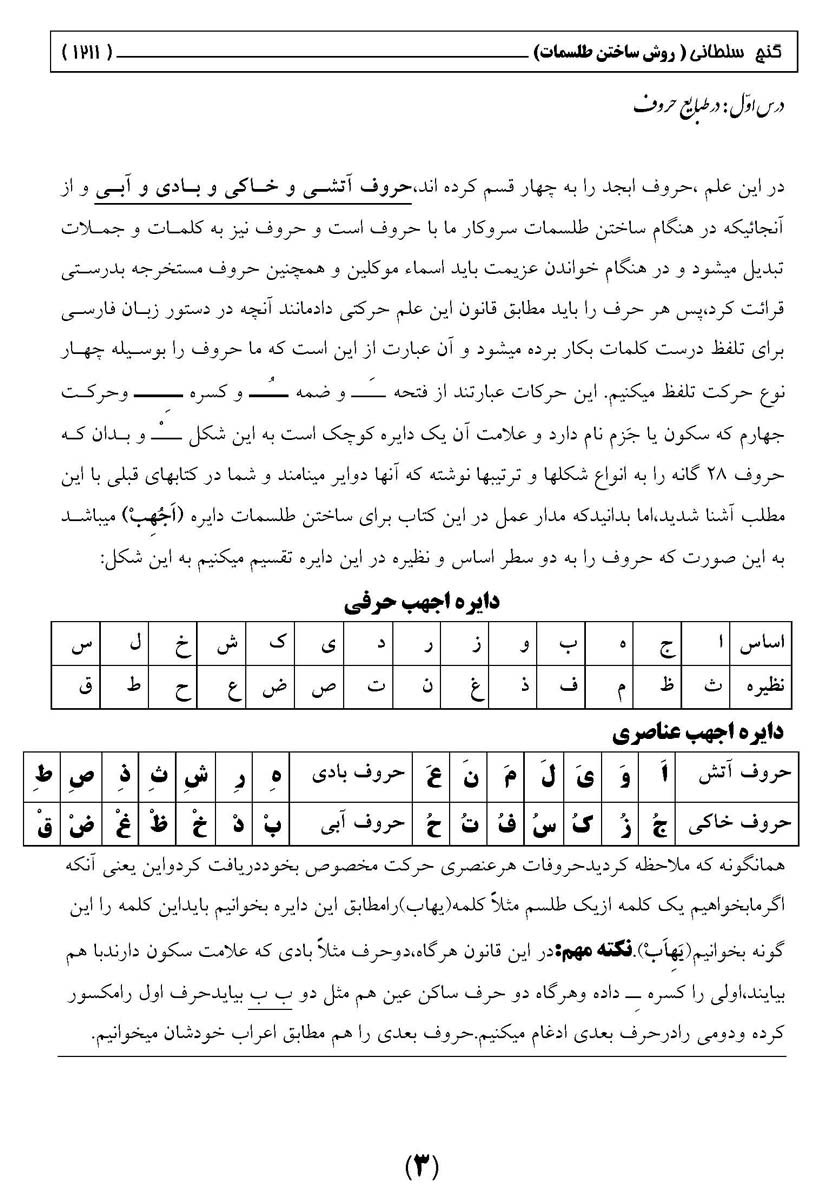 گنج سلطانی ( روش ساختن طلسمات) ــــــــــــــــــــ ( ۱۲۱۱ )
درس اوّل : در طبایع حروف
در این علم ،حروف ابجد را به چهار قسم کرده اند،حروف آتشی و خاکی و بادی و آبی و از
آنجائیکه در هنگام ساختن طلسمات سروکار ما با حروف است و حروف نیز به کلمات و جملات
تبدیل میشود و در هنگام خواندن عزیمت باید اسماء موکلین و همچنین حروف مستخرجه بدرستی
قرائت کرد،پس هر حرف را باید مطابق قانون این علم حرکتی دادمانند آنچه در دستور زبان فارسی
برای تلفظ درست کلمات بکار برده میشود و آن عبارت از این است که ما حروف را بوسیله چهار
نوع حرکت تلفظ میکنیم. این حرکات عبارتند از فتحه ـَـ و ضمه ـُـ و کسره ـِـ وحرکت
جهارم که سکون یا جَزم نام دارد و علامت آن یک دایره کوچک است به این شکل ـْـ و بدان که
حروف ۲۸ گانه را به انواع شکلها و ترتیبها نوشته که آنها دوایر مینامند و شما در کتابهای قبلی با این
مطلب آشنا شدید،اما بدانیدکه مدار عمل در این کتاب برای ساختن طلسمات دایره (اَجُهِبْ) میباشد
به این صورت که حروف را به دو سطر اساس و نظیره در این دایره تقسیم میکنیم به این شکل:
دایره اجهب حرفی
اساس ا ج ه ب و ز ر د ی ک ش خ ل س
نظیره ث ظ م ف ذ غ ن ت ص ض ع ح ط ق
دایره اجهب عناصری
حروف آتش اَ وَ یَ لَ مَ نَ عَ حروف بادی هِ رِ شِ ثِ ذِ صِ طِ
حروف خاکی جُ زُ کُ سُ فُ تُ حُ حروف آبی بْ دْ خْ ظْ غْ ضْ قْ
همانگونه که ملاحظه کردیدحروفات هرعنصری حرکت مخصوص بخوددریافت کردواین یعنی آنکه
اگرمابخواهیم یک کلمه ازیک طلسم مثلاً کلمه(یهاب)رامطابق این دایره بخوانیم بایداین کلمه را این
گونه بخوانیم(یَهِاَبْ).نکته مهم:در این قانون هرگاه،دوحرف مثلاً بادی که علامت سکون دارندبا هم
بیایند،اولی را کسره ـِـ داده وهرگاه دو حرف ساکن عین هم مثل دو ب ب بیایدحرف اول رامکسور
کرده ودومی رادرحرف بعدی ادغام میکنیم.حروف بعدی را هم مطابق اعراب خودشان میخوانیم.
(۳)